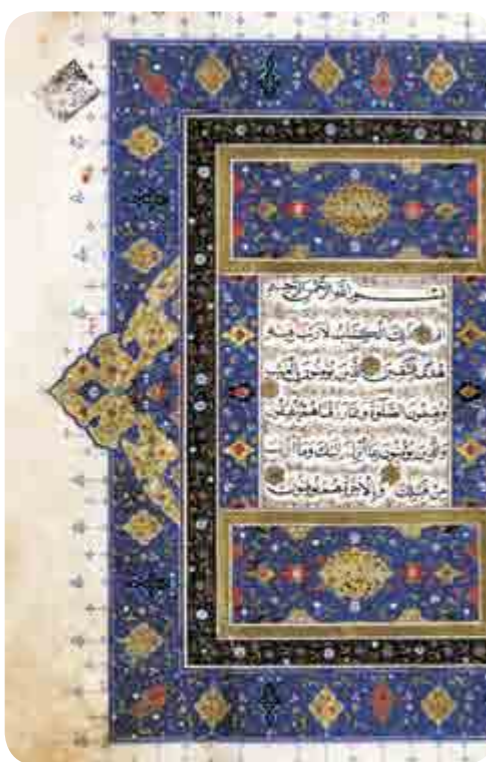 بسم الله الرحمن الرحيم
الم ذلك الكتاب لا ريب فيه
هدى للمتقين الذين يؤمنون بالغيب
ويقيمون الصلوة ومما رزقناهم ينفقون
والذين يؤمنون بما أنزل إليك وما أنزل
من قبلك وبالآخرة هم يوقنون